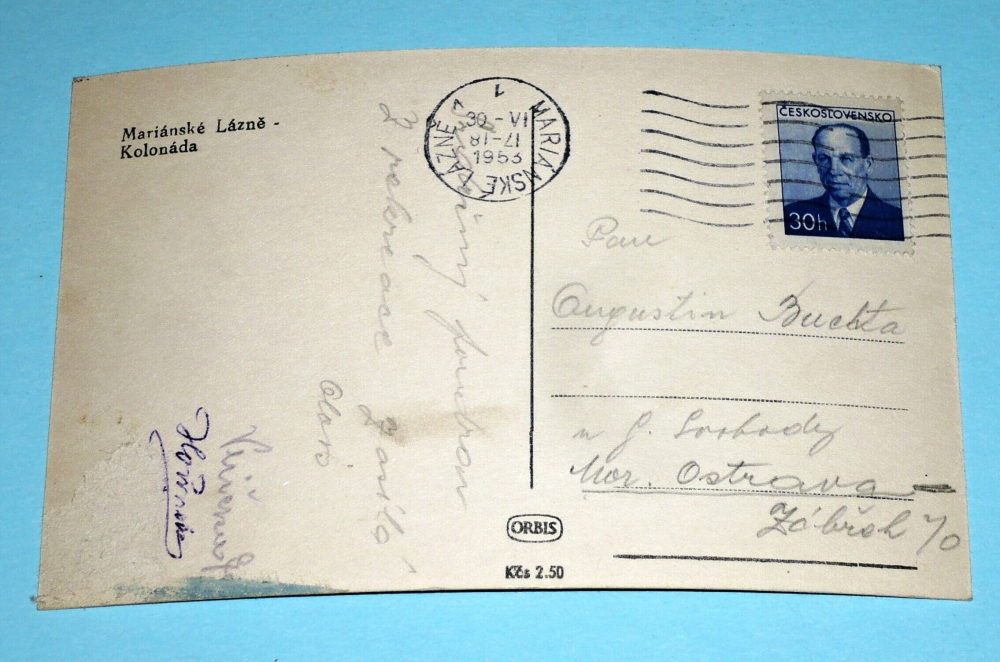 Mariánské Lázně -
Kolonáda
MARIÁNSKÉ LÁZNĚ
1
30.-VI
17-18
1953
ČESKOSLOVENSKO
30h
Pan
Augustin Buchta
u J. Svobody
Mor. Ostrava -
Zábřeh n/O
Z rekreace zasílá
Alois
ORBIS
Kčs 2.50